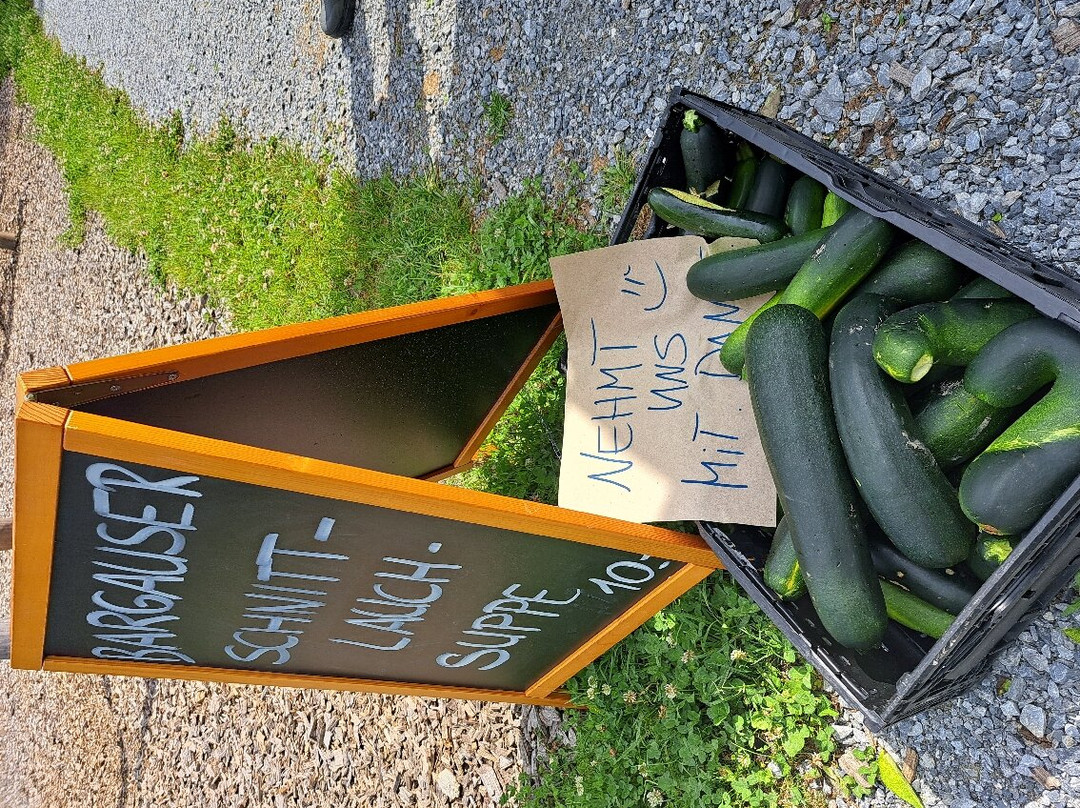 BARGAUSER
SCHNITT-
LAUCH-
SUPPE
10.-
NEHMT
UNS
MiT. DAN